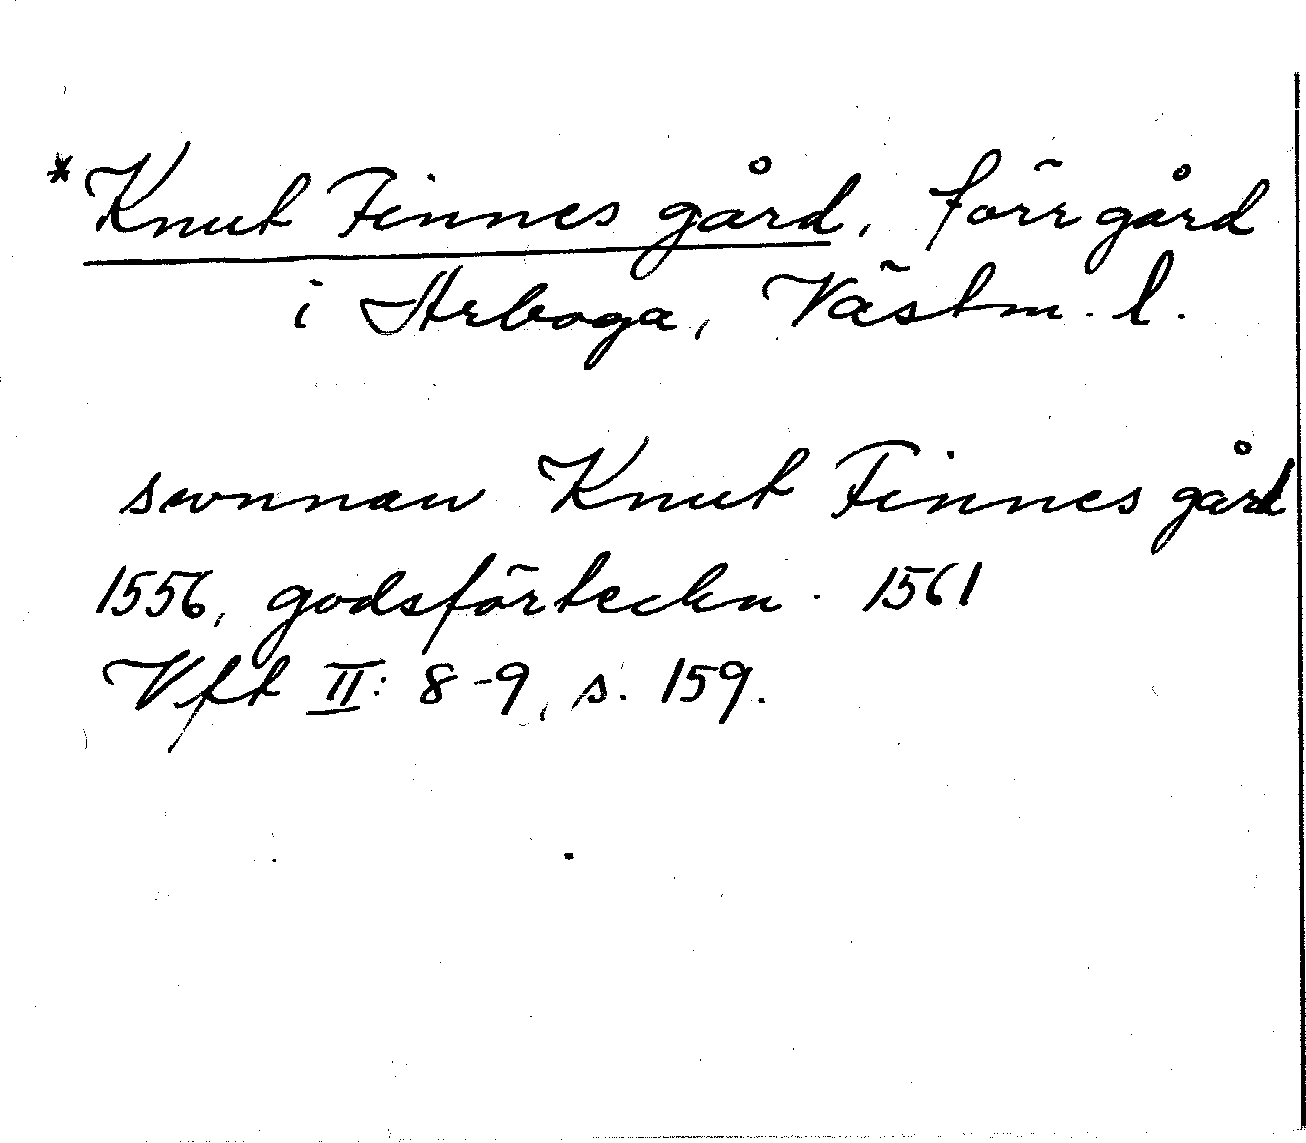 *Knut Finnes gård, förr gård
i Arboga, Västm. l.
sunnan Knut Finnes gård
1556, godsförteckn. 1561
Vft II: 8-9, s. 159.